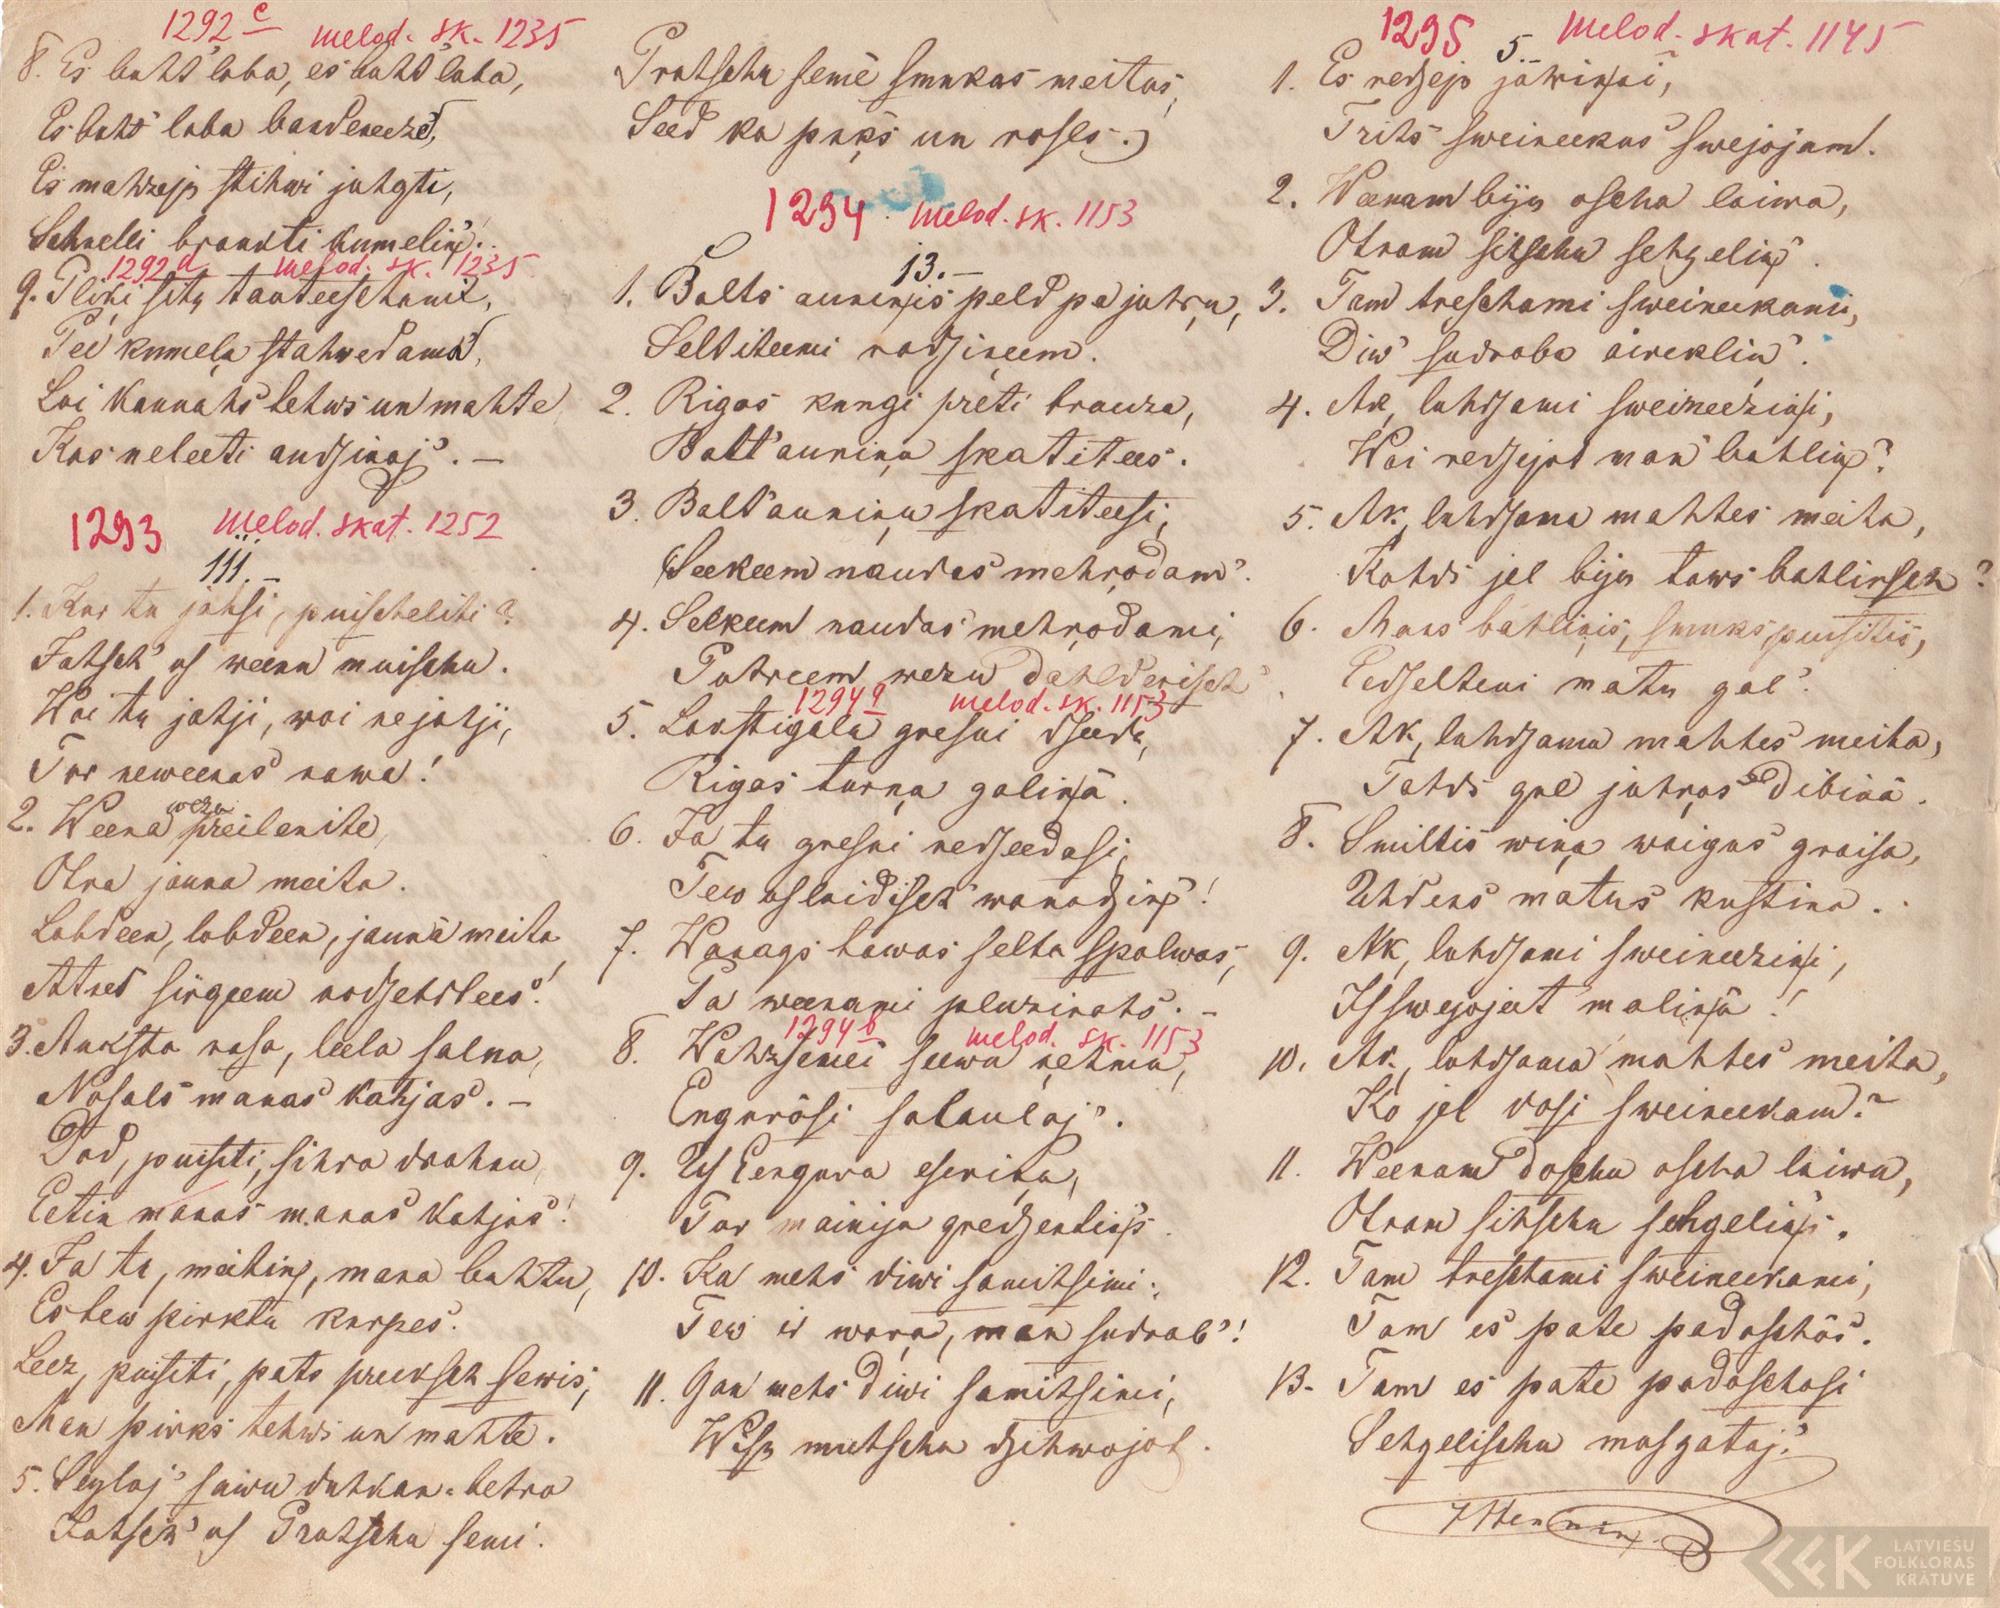 1292 c melod. sk. 1235
8. Es buhs' laba, es buhs' laba,
Es buhs' laba
Es mahzeju stihwi juhgti,
Schnelli braukti kumeliņ'.
1292 d melod. sk. 1235
9. Pliķi situ tauteescham,
Pee kumeļa stahwedama,
Lai kaunahs tehws un mahte,
Kas neleeti audzinaj'. —
1293 melod. skat. 1252
111. —
1. Kur tu jahsi, puischeliti?
Jahsch' us weenu muischu.
Woi tu jahji, woi nejahji,
Tur neweenas nawa!
2. Weena weza preilenite,
Otra jauna meita.
Labdeen, labdeen, jaunā meita,
Atned sirgeem
3. Auksta rasa, leela salna,
Nosals manas kahjas. —
Dod, puisiti, sihra drahnu,
Eetin manas manas kahjas!
4. Ja tu, meitiņ, mana buhtu,
Es tew pirktu kurpes.
Leez, puisiti, pats preeksch sewis,
Man pirks tehws un mahte.
5. Seglaj' sawu duhkan-behro
Jahsch' us Prahschu semi.
Prahschu semē smukas meitas,
Seed ka puķs un roses.)
1294. melod. sk. 1153
13. —
1. Balts auniņis peld pa juhŗu,
Seltiteemi radziņeem.
2. Rigas kungi preti brauza,
Balt' auniņa skatitees.
3. Balt' auniņu skatiteesi,
Seekeem naudas mehŗodam'.
4. Seekeem naudas mehŗodami,
Puhreem wezu dahlderisch'.
1294 a melod. sk. 1153
5. Lakstigala gresni dseed,
Rigas turņa galiņā.
6. Ja tu gresni nedzeedasi,
Tew uslaidisch' wanadziņ'!
7. Wanags tawas selta spalwas,
Pa weenami pluzinahs. —
1294 b melod. sk. 1153
8. Wahzsemei seewu ņehmu,
Engurōsi salaulaj'.
9. Us Eengura eseriņa,
Tur mainiju gredzentiņ'.
10. Ka mehs diwi samihsimi;
Tew ir waŗa, man sudrab'!
11. Gan mehs diwi samihsimi,
Wisu muhschu dzihwojot.
1295 melod. skat. 1145
5. —
1. Es redzeju jūriņai,
Trihs sweineekus swejojam.
2. Weenam bija oscha laiwa,
Otram sihschu sehgeliņ'.
3. Tam treschami sweineekami,
Diw' sudraba aireklin'.
4. Ak, luhdzami sweineeziņi,
Woi redzejat man' bahliņ'?
5. Ak, luhdzama mahtes meita,
Kahds jel bija taws bahlinsch?
6. Mans bahliņis, smuks puisitis,
Eedzelteni matu gal'.
7. Ak, luhdzama mahtes meita,
Tahds guļ juhŗas dibinā.
8. Smiltis wiņa waigus graisa,
Uhdens matus kustina.
9. Ak, luhdzami sweineeziņi,
Isswejojeet maliņā!
10. Ak, luhdzama mahtes meita,
Ko jel dosi sweineekam?
11. Weenam doschu oscha laiwu,
Otram sihschu sehgeliņ'.
12. Tam treschami sweineekami,
Tam es pate padoschōs.
13. Tam es pate padoschosi
Sehgelischu masgataj'.
LATVIEŠU
FOLKLORAS
KRĀTUVE